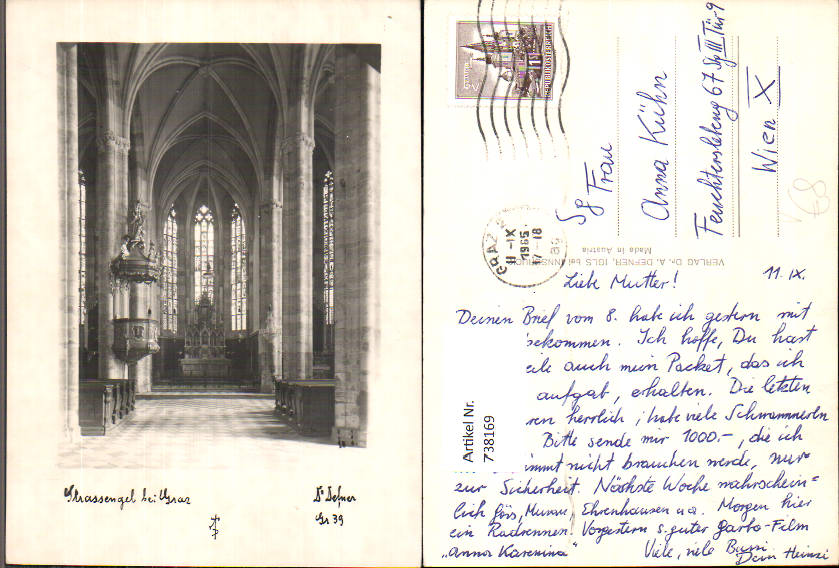 Strassengel bei Graz
Dr Defner
Gr 39
REPUBLIK ÖSTERREICH
GRAZ
11.-IX
1965
17-18
Sg Frau
Anna Kühn
Feuchterslebeng 67 Stg III Tür 9
Wien X
68
VERLAG Dr. A. DEFNER, IGLS bei INNSBRUCK
Made in Austria
11. IX.
Liebe Mutter!
Deinen Brief vom 8. habe ich gestern mit
bekommen. Ich hoffe, Du hast
eile auch mein Packet, das ich
aufgab, erhalten. Die letzten
ren herrlich, habe viele Schwammerln
Bitte sende mir 1000.-, die ich
immt nicht brauchen werde, nur
zur Sicherheit. Nächste Woche wahrschein=
lich Görs, Murau, Ehrenhausen u.a. Morgen hier
ein Radrennen. Vorgestern s. guter Garbo-Film
"Anna Karenina" Viele, viele Bussi
Dein Heinzi
Artikel Nr.
738169